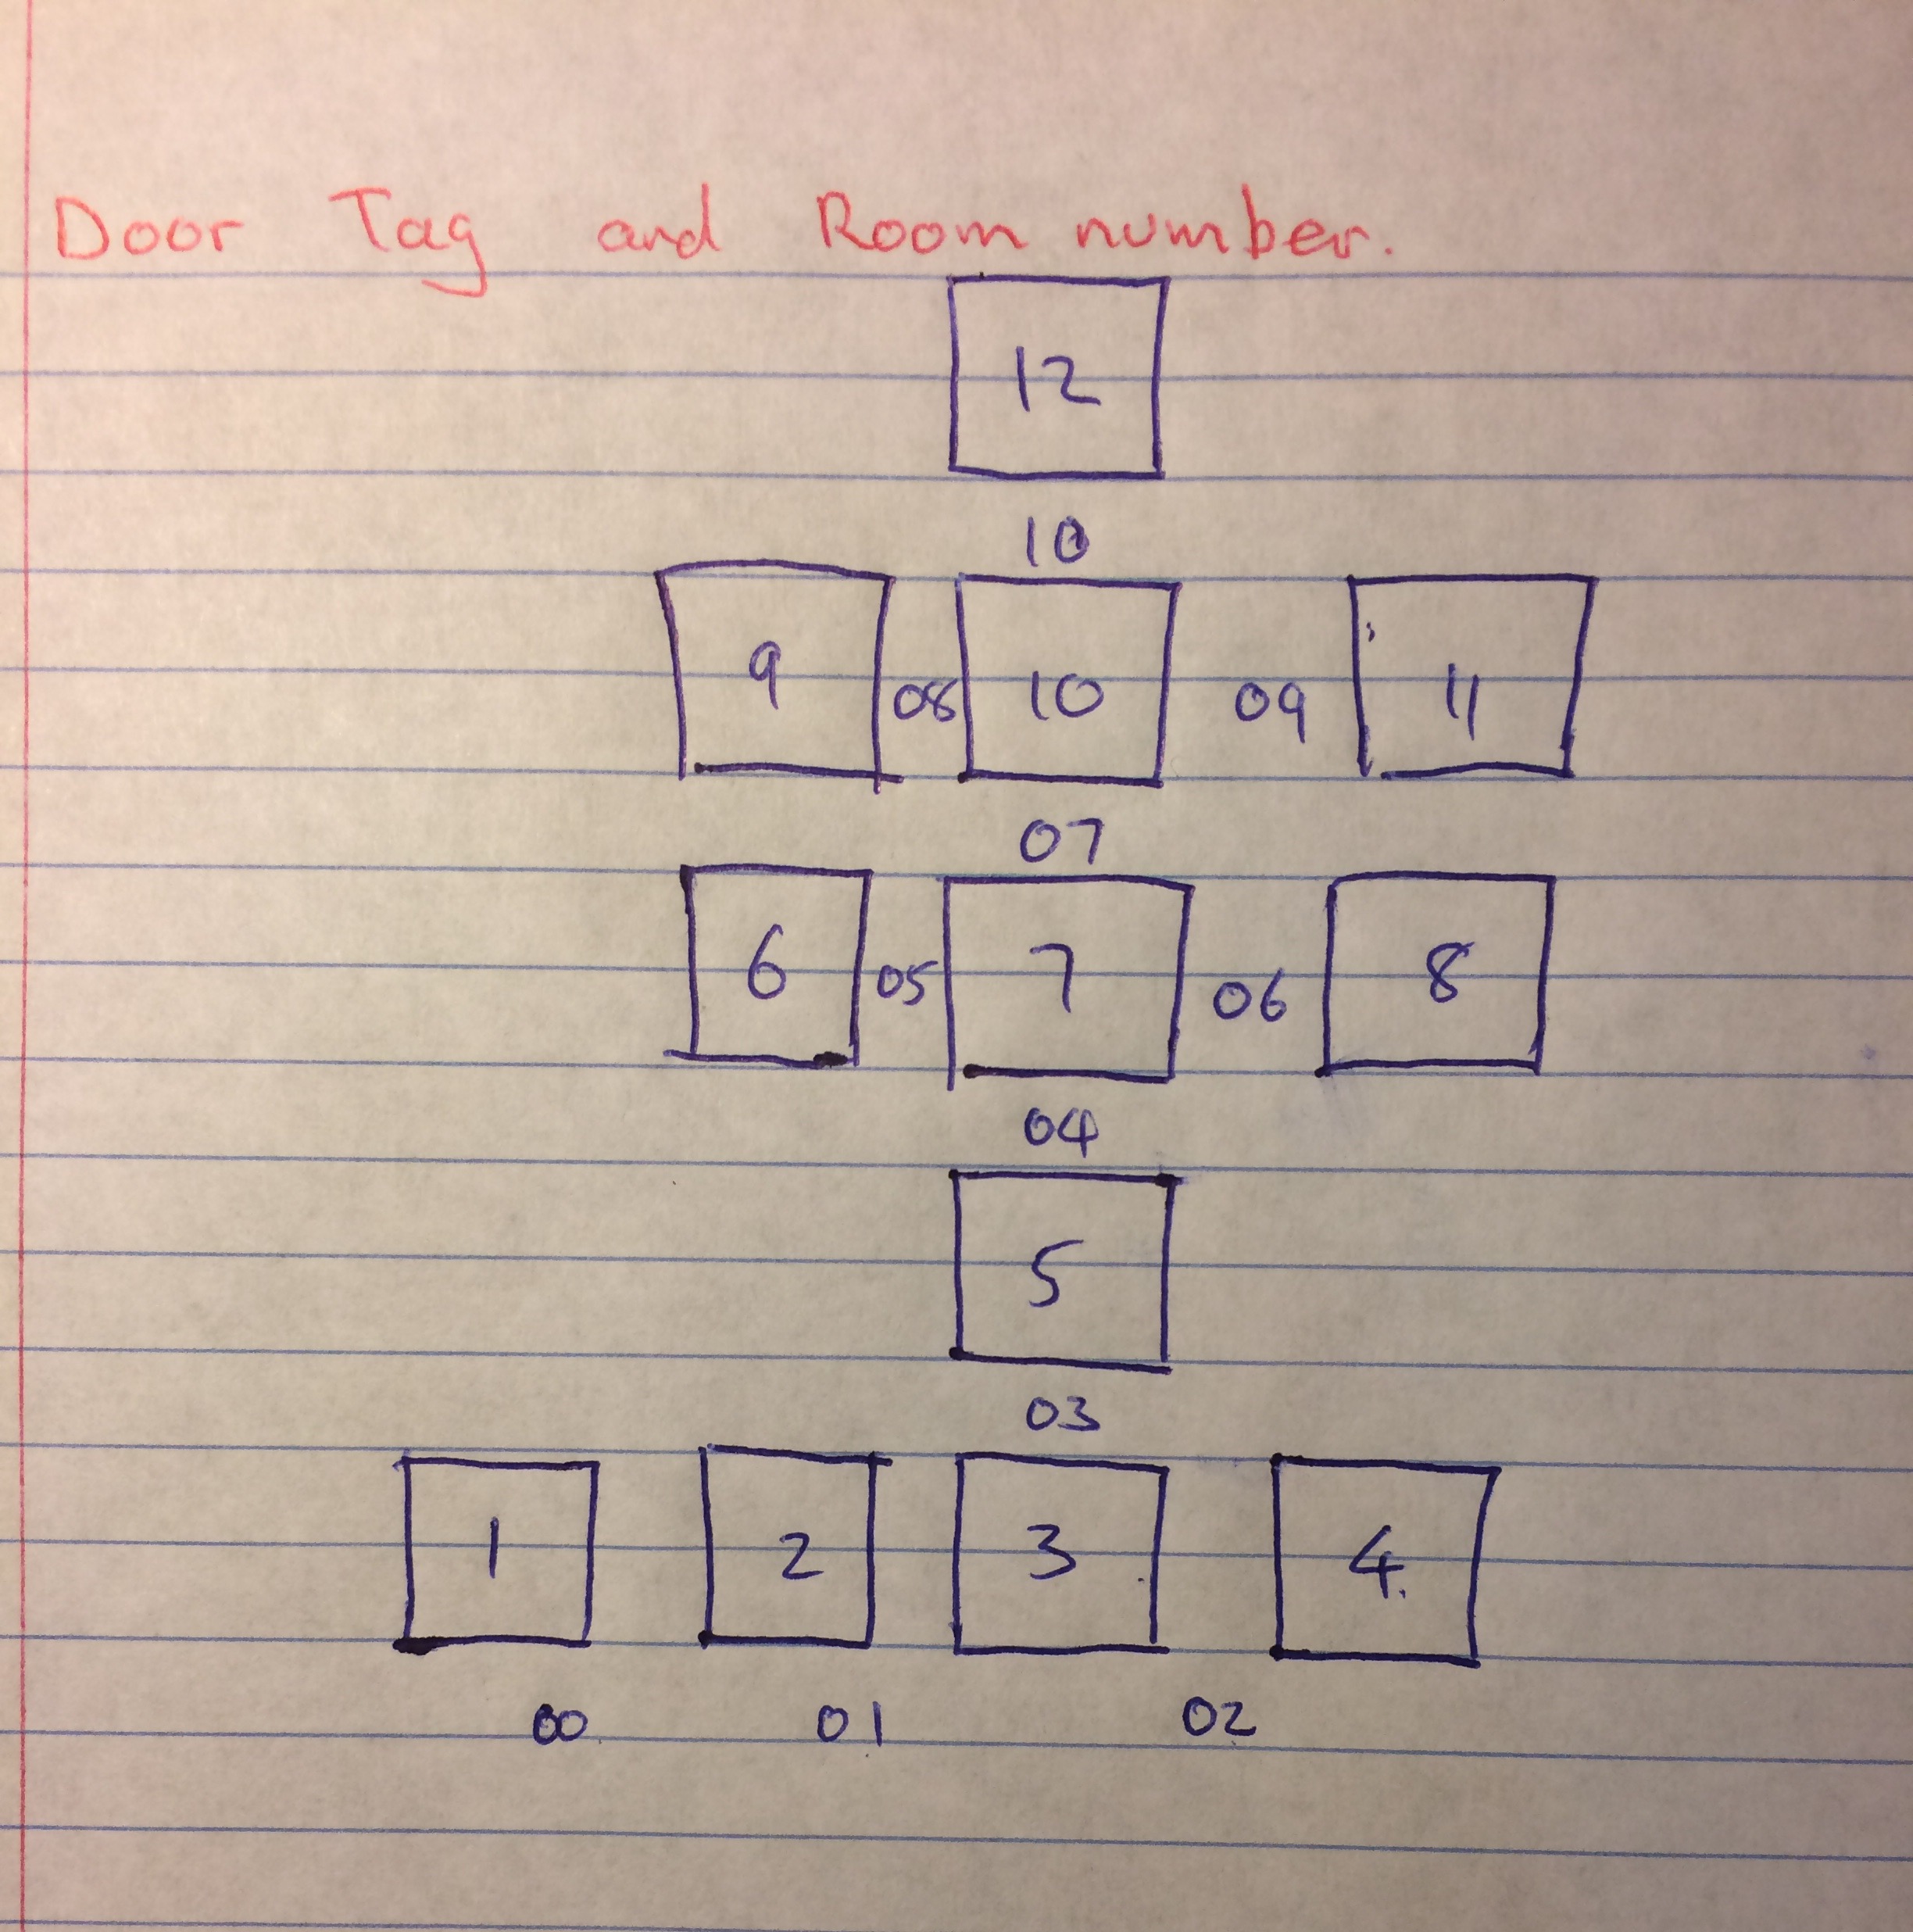 Door Tag and Room number.
12
10
9 08 10 09 11
07
6 05 7 06 8
04
5
03
1 2 3 4.
00 01 02